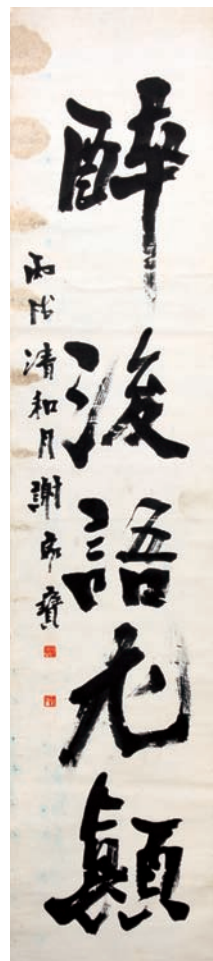 醉後語尤顛
丙戌清和月謝家寶